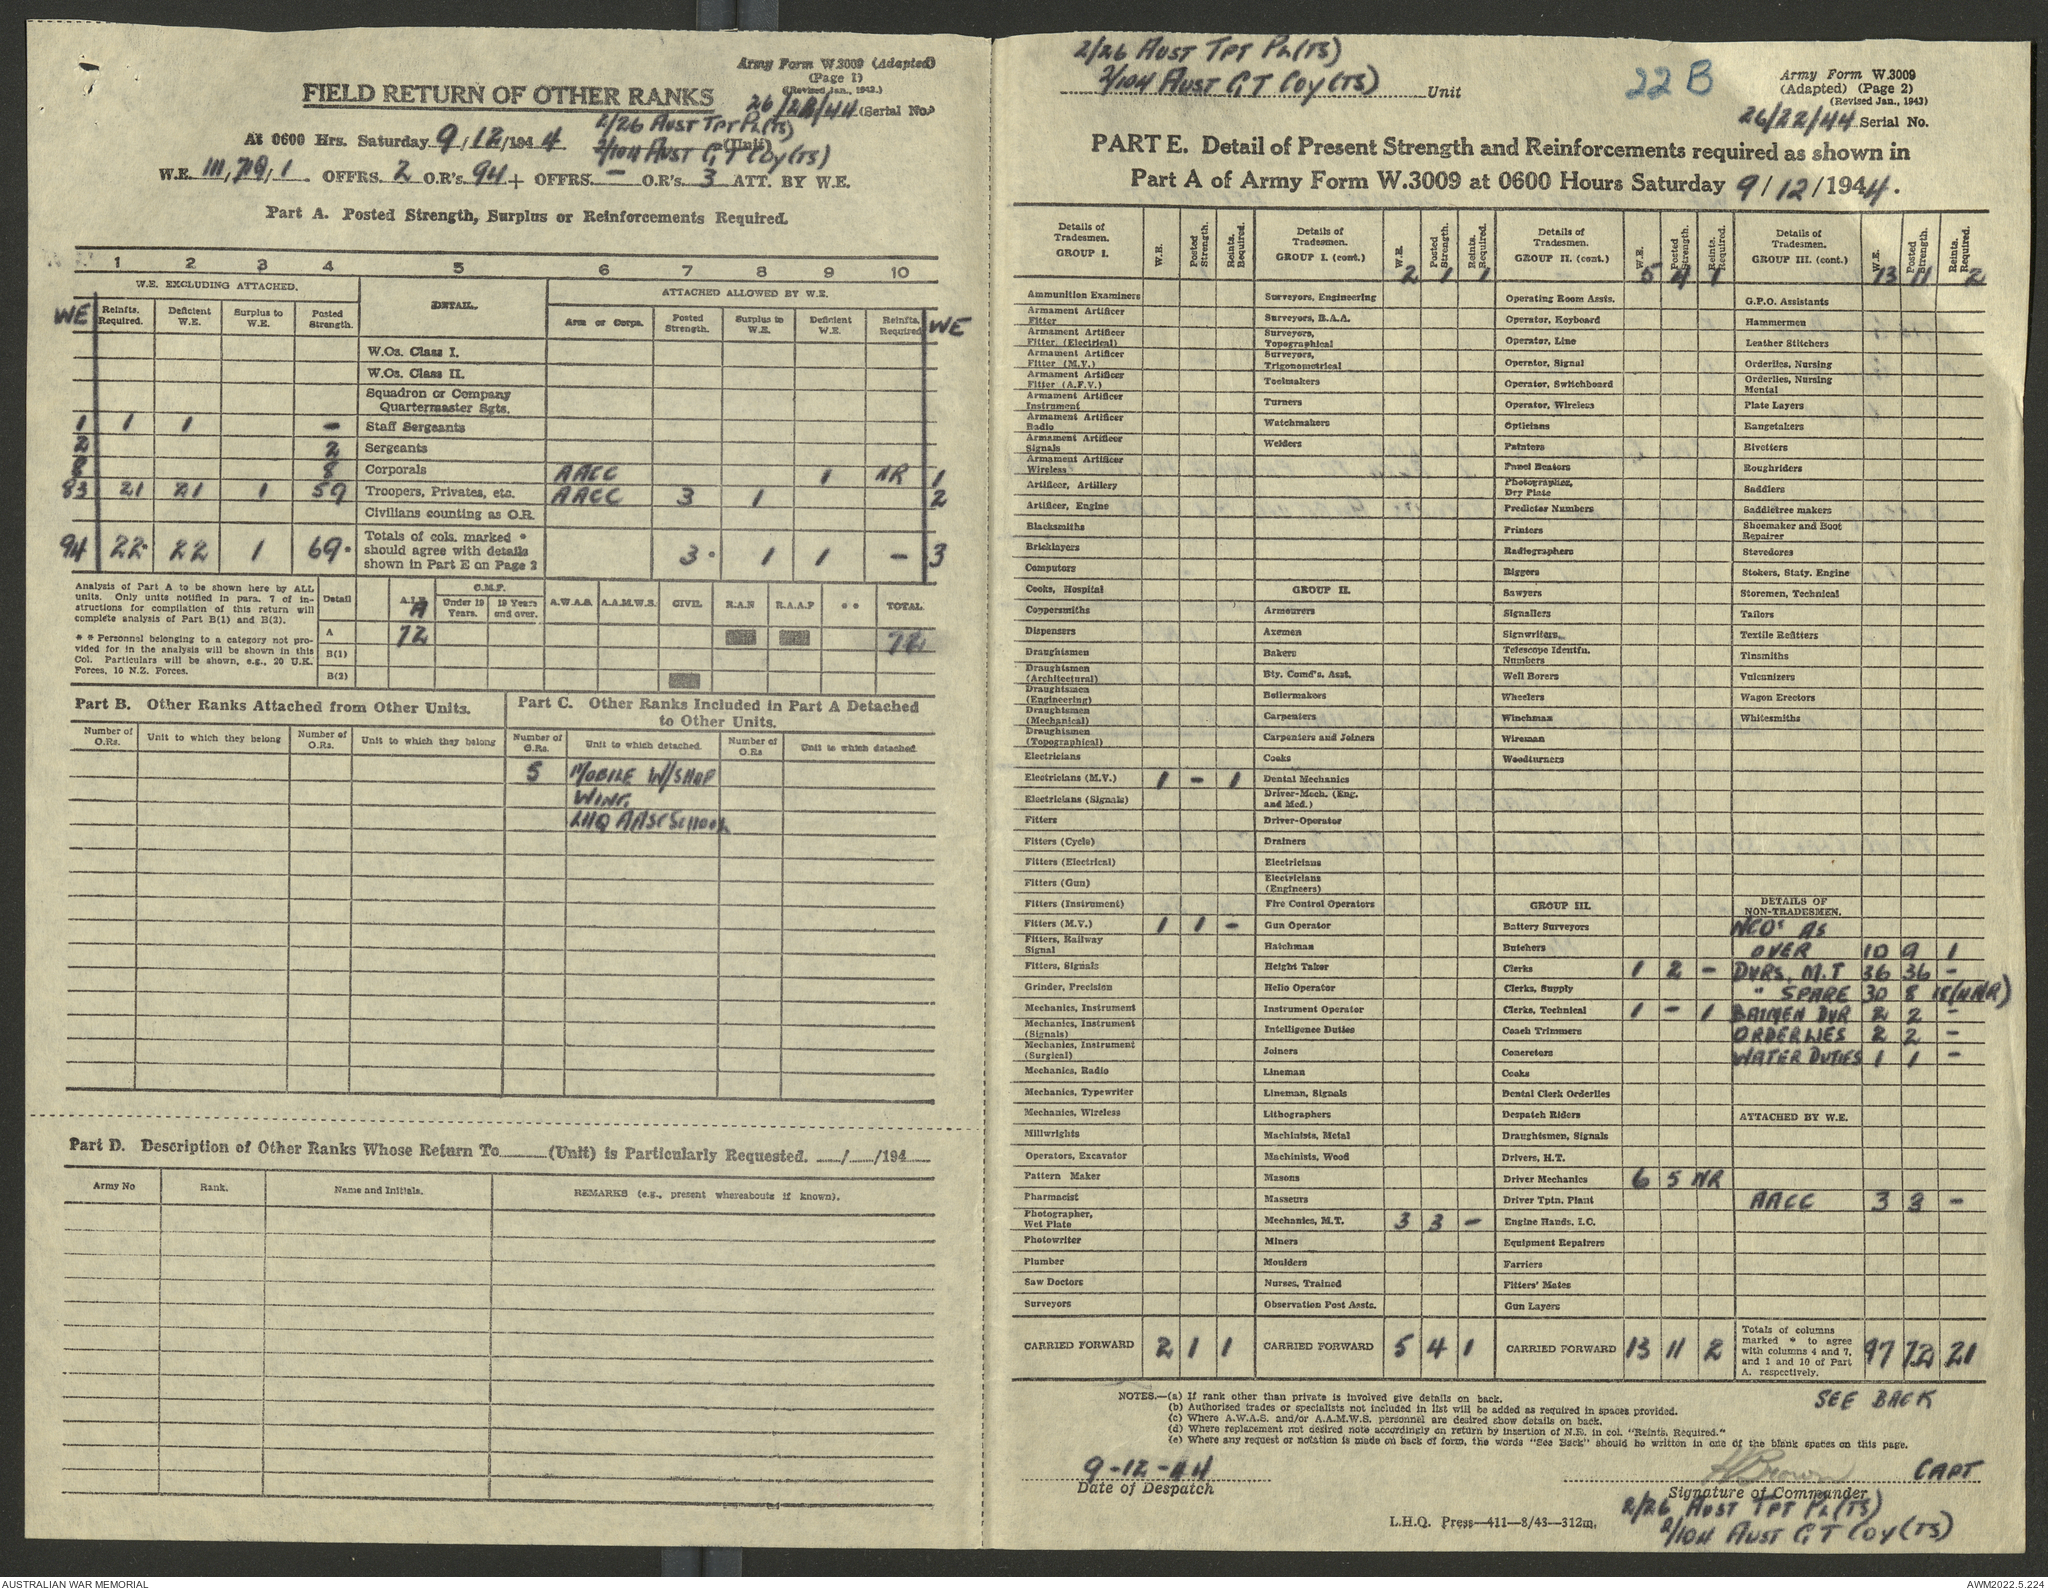 Army Form W.3009 (Adapted)
(Page 1)
(Revised Jan., 1943.)
FIELD RETURN OF OTHER RANKS
26/22/44 (Serial No.)
2/26 AUST TPT PL(TS)
At 0600 Hrs. Saturday 9/12/1944 2/104 AUST G T COY (TS) (Unit)
W.E. III, 719, 1. OFFRS. 2 O.R's. 94 + OFFRS. – O.R's. 3 ATT. BY W.E.
Part A. Posted Strength, Surplus or Reinforcements Required.
1 2 3 4 5 6 7 8 9 10
W.E. EXCLUDING ATTACHED. DETAIL. ATTACHED ALLOWED BY W.E.
WE Reinfts. Required. Deficient W.E. Surplus to W.E. Posted Strength. Arm or Corps. Posted Strength. Surplus to W.E. Deficient W.E. Reinfts. Required WE
W.Os. Class I.
W.Os. Class II.
Squadron or Company
Quartermaster Sgts.
1 1 1 – Staff Sergeants
2 2 Sergeants
8 8 Corporals AACC 1 NR 1
83 21 21 1 59 Troopers, Privates, etc. AACC 3 1 2
Civilians counting as O.R.
94 22* 22 1 69* Totals of cols. marked * should agree with details shown in Part E on Page 2 3* 1 1 – 3
Analysis of Part A to be shown here by ALL
units. Only units notified in para. 7 of in-
structions for compilation of this return will
complete analysis of Part B(1) and B(2).
* * Personnel belonging to a category not pro-
vided for in the analysis will be shown in this
Col. Particulars will be shown, e.g., 20 U.K.
Forces, 10 N.Z. Forces.
Detail A.I.F. C.M.F. Under 19 Years. 19 Years and over. A.W.A.S. A.A.M.W.S. CIVIL R.A.N R.A.A.F * * TOTAL
A
A 72 72
B(1)
B(2)
Part B. Other Ranks Attached from Other Units.
Number of O.Rs. Unit to which they belong Number of O.Rs. Unit to which they belong
Part C. Other Ranks Included in Part A Detached
to Other Units.
Number of O.Rs. Unit to which detached. Number of O.Rs Unit to which detached.
5 MOBILE W/SHOP
WING
LHQ AASC SCHOOL
Part D. Description of Other Ranks Whose Return To (Unit) is Particularly Requested. / /194
Army No Rank. Name and Initials. REMARKS (e.g., present whereabouts if known).
2/26 AUST TPT PL(TS)
2/104 AUST G T COY (TS) Unit
22 B
Army Form W.3009
(Adapted) (Page 2)
(Revised Jan., 1943)
26/22/44 Serial No.
PART E. Detail of Present Strength and Reinforcements required as shown in
Part A of Army Form W.3009 at 0600 Hours Saturday 9/12/1944.
Details of Tradesmen. GROUP I. W.E. Posted Strength. Reinfts. Required.
Ammunition Examiners
Armament Artificer Fitter
Armament Artificer Fitter, (Electrical)
Armament Artificer Fitter (M.V.)
Armament Artificer Fitter (A.F.V.)
Armament Artificer Instrument
Armament Artificer Radio
Armament Artificer Signals
Armament Artificer Wireless
Artificer, Artillery
Artificer, Engine
Blacksmiths
Bricklayers
Computors
Cooks, Hospital
Coppersmiths
Dispensers
Draughtsmen
Draughtsmen (Architectural)
Draughtsmen (Engineering)
Draughtsmen (Mechanical)
Draughtsmen (Topographical)
Electricians
Electricians (M.V.) 1 – 1
Electricians (Signals)
Fitters
Fitters (Cycle)
Fitters (Electrical)
Fitters (Gun)
Fitters (Instrument)
Fitters (M.V.) 1 1 –
Fitters, Railway Signal
Fitters, Signals
Grinder, Precision
Mechanics, Instrument
Mechanics, Instrument (Signals)
Mechanics, Instrument (Surgical)
Mechanics, Radio
Mechanics, Typewriter
Mechanics, Wireless
Millwrights
Operators, Excavator
Pattern Maker
Pharmacist
Photographer, Wet Plate
Photowriter
Plumber
Saw Doctors
Surveyors
CARRIED FORWARD 2 1 1
Details of Tradesmen. GROUP I. (cont.) W.E. Posted Strength. Reinfts. Required.
2 1 1
Surveyors, Engineering
Surveyors, R.A.A.
Surveyors, Topographical
Surveyors, Trigonometrical
Toolmakers
Turners
Watchmakers
Welders
GROUP II.
Armourers
Axemen
Bakers
Bty. Comd's. Asst.
Boilermakers
Carpenters
Carpenters and Joiners
Cooks
Dental Mechanics
Driver-Mech. (Eng. and Med.)
Driver-Operator
Drainers
Electricians
Electricians (Engineers)
Fire Control Operators
Gun Operator
Hatchman
Height Taker
Helio Operator
Instrument Operator
Intelligence Duties
Joiners
Lineman
Lineman, Signals
Lithographers
Machinists, Metal
Machinists, Wood
Masons
Masseurs
Mechanics, M.T. 3 3 –
Miners
Moulders
Nurses, Trained
Observation Post Assts.
CARRIED FORWARD 5 4 1
Details of Tradesmen. GROUP II. (cont.) W.E. Posted Strength. Reinfts. Required.
5 4 1
Operating Room Assts.
Operator, Keyboard
Operator, Line
Operator, Signal
Operator, Switchboard
Operator, Wireless
Opticians
Painters
Panel Beaters
Photographer, Dry Plate
Predictor Numbers
Printers
Radiographers
Riggers
Sawyers
Signallers
Signwriters
Telescope Identfn. Numbers
Well Borers
Wheelers
Winchman
Wireman
Woodturners
GROUP III.
Battery Surveyors
Butchers
Clerks 1 2 –
Clerks, Supply
Clerks, Technical 1 – 1
Coach Trimmers
Concretors
Cooks
Dental Clerk Orderlies
Despatch Riders
Draughtsmen, Signals
Drivers, H.T.
Driver Mechanics 6 5 NR
Driver Tptn. Plant
Engine Hands, I.C.
Equipment Repairers
Farriers
Fitters' Mates
Gun Layers
CARRIED FORWARD 13 11 2
Details of Tradesmen. GROUP III. (cont.) W.E. Posted Strength. Reinfts. Required.
13 11 2
G.P.O. Assistants
Hammermen
Leather Stitchers
Orderlies, Nursing
Orderlies, Nursing Mental
Plate Layers
Rangetakers
Rivetters
Roughriders
Saddlers
Saddletree makers
Shoemaker and Boot Repairer
Stevedores
Stokers, Staty. Engine
Storemen, Technical
Tailors
Textile Refitters
Tinsmiths
Vulcanizers
Wagon Erectors
Whitesmiths
DETAILS OF NON-TRADESMEN.
NCOs AS
OVER 10 9 1
DVRS. M.T 36 36 –
" SPARE 30 8 18 (4 NR)
BATMEN DVR 2 2 –
ORDERLIES 2 2 –
WATER DUTIES 1 1 –
ATTACHED BY W.E.
AACC 3 3 –
Totals of columns marked * to agree with columns 4 and 7, and 1 and 10 of Part A. respectively. 97 72 21
NOTES.—(a) If rank other than private is involved give details on back.
(b) Authorised trades or specialists not included in list will be added as required in spaces provided.
(c) Where A.W.A.S. and/or A.A.M.W.S. personnel are desired show details on back.
(d) Where replacement not desired note accordingly on return by insertion of N.R. in col. "Reinfts. Required."
(e) Where any request or notation is made on back of form, the words "See Back" should be written in one of the blank spaces on this page.
SEE BACK
9-12-44
Date of Despatch
H Brown CAPT
Signature of Commander
2/26 AUST TPT PL (TS)
2/104 AUST G T COY (TS)
L.H.Q. Press—411—8/43—312m.
AUSTRALIAN WAR MEMORIAL
AWM2022.5.224